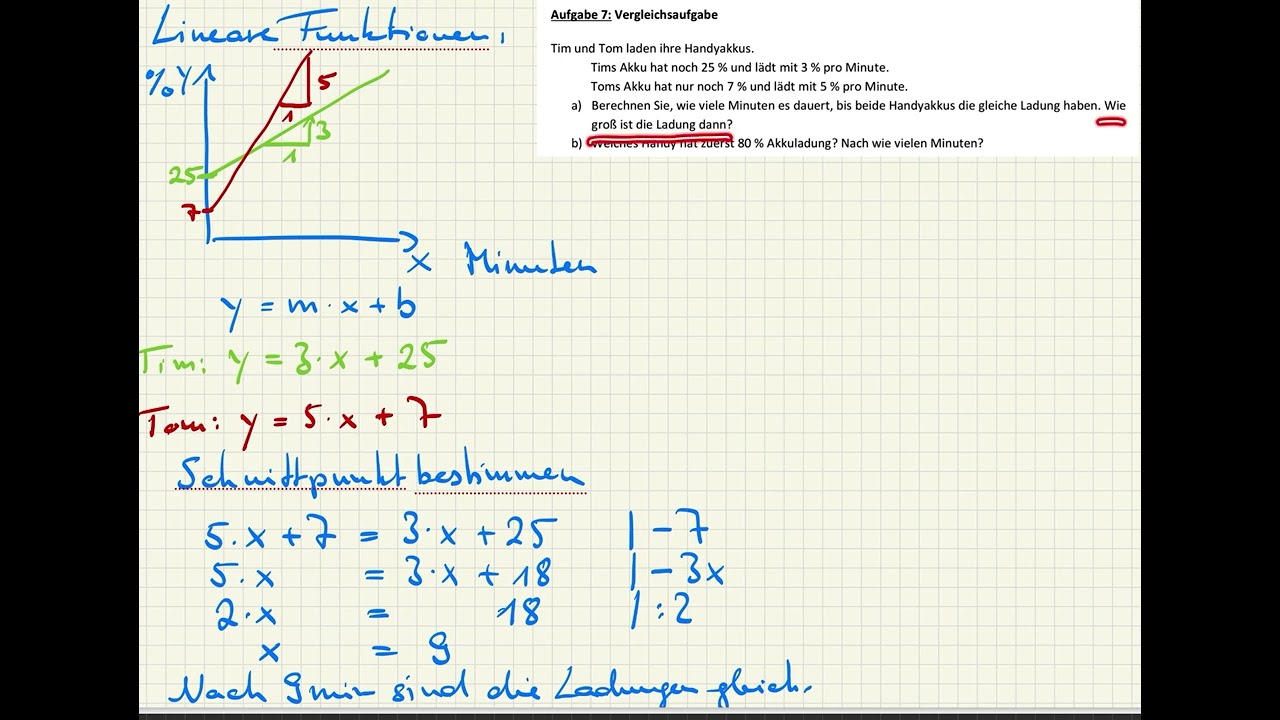 Lineare Funktionen,
% Y
5
1
3
1
25
7
x Minuten
y = m · x + b
Tim: y = 3 · x + 25
Tom: y = 5 · x + 7
Schnittpunkt bestimmen
5 · x + 7 = 3 · x + 25 | - 7
5 · x = 3 · x + 18 | - 3x
2 · x = 18 | : 2
x = 9
Nach 9 min sind die Ladungen gleich.
Aufgabe 7: Vergleichsaufgabe
Tim und Tom laden ihre Handyakkus.
Tims Akku hat noch 25 % und lädt mit 3 % pro Minute.
Toms Akku hat nur noch 7 % und lädt mit 5 % pro Minute.
a) Berechnen Sie, wie viele Minuten es dauert, bis beide Handyakkus die gleiche Ladung haben. Wie
groß ist die Ladung dann?
b) Welches Handy hat zuerst 80 % Akkuladung? Nach wie vielen Minuten?